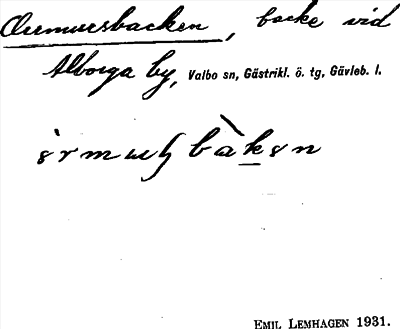 Ormursbacken, backe vid
Alborga by, Valbo sn, Gästrikl. ö. tg, Gävleb. l.
EMIL LEMHAGEN 1931.